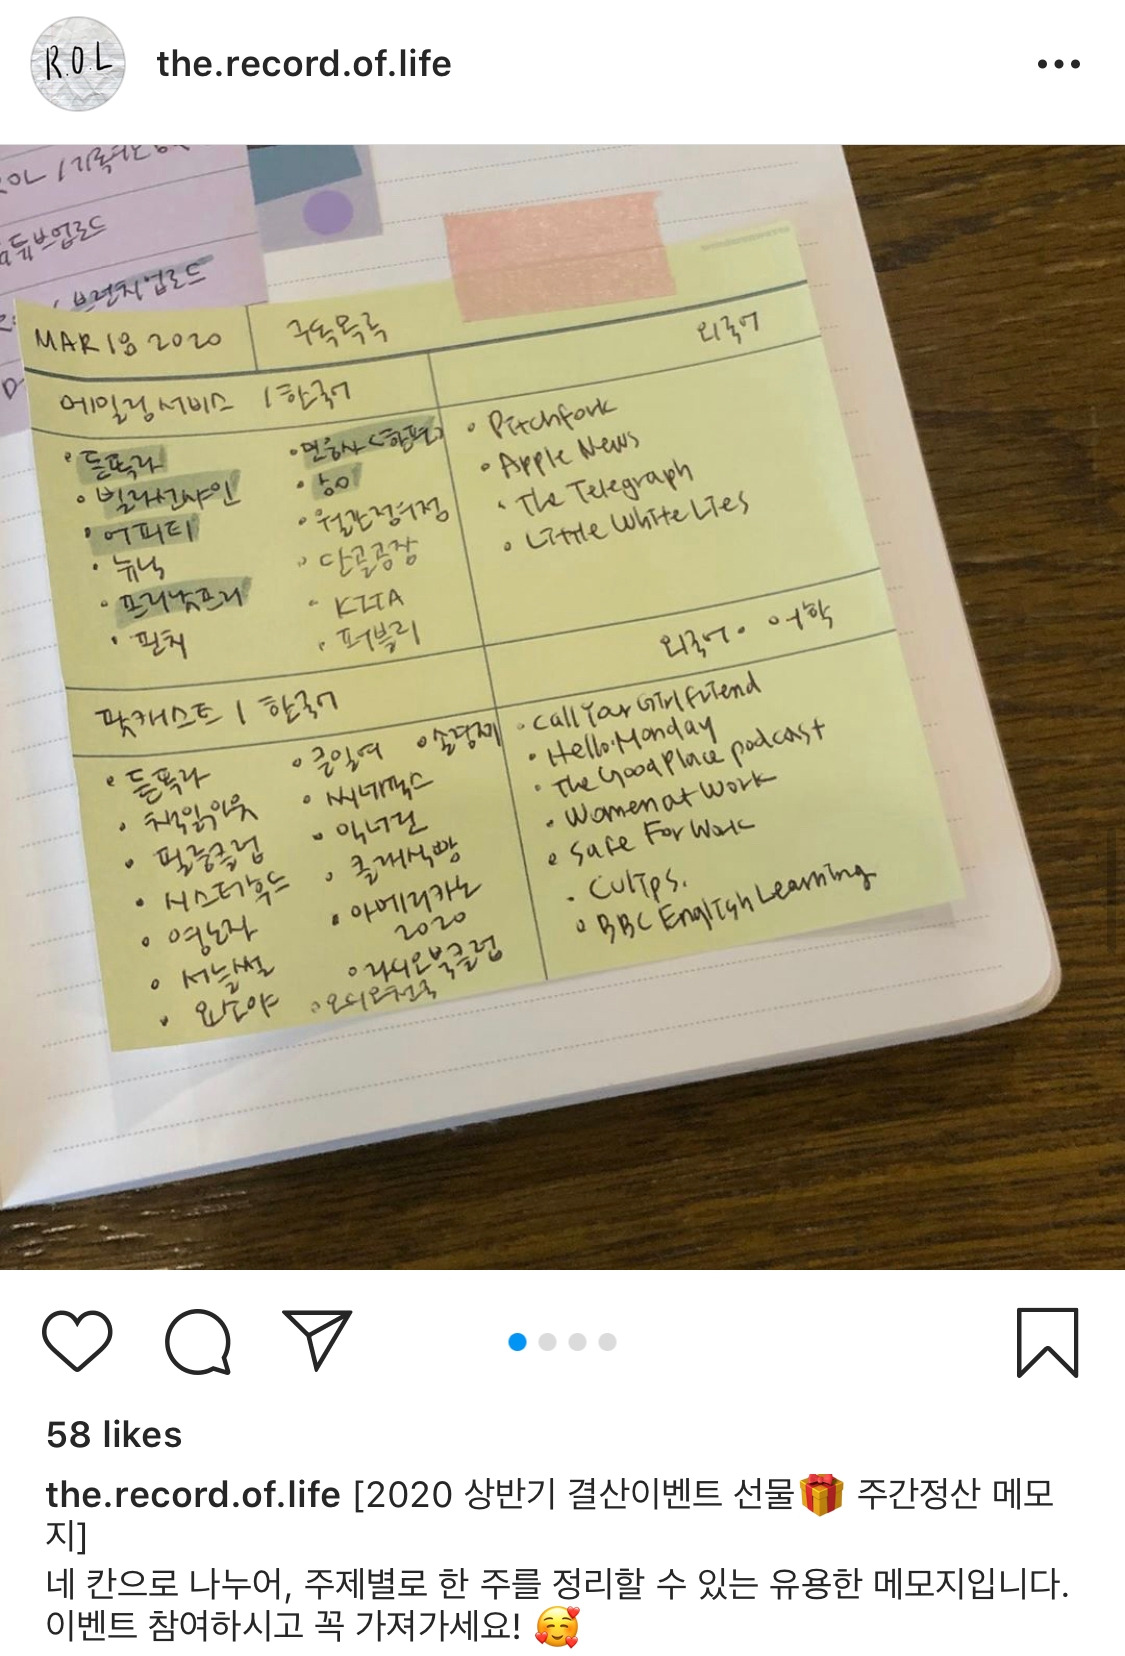 R.O.L
the.record.of.life
튜브업로드
브런치업로드
MAR 18 2020
구독목록
메일링서비스 / 한국어
외국어
• 듣똑라
• 빌라선샤인
• 어피티
• 뉴닉
• 프리낫프리
• 핀치
• 월간정여정
• 단골공장
• 퍼블리
• Pitchfork
• Apple News
• The Telegraph
• Little White Lies
팟캐스트 / 한국어
외국어 • 어학
• 듣똑라
• 책읽아웃
• 필름클럽
• 시스터후드
• 영노자
• 서늘썰
• 요소야
• 큰일여
• 씨네픽스
• 악너런
• 클래식빵
• 아메리카노
2020
• 라디오북클럽
• Call Your Girlfriend
• Hello Monday
• The Good Place podcast
• Women at Work
• Safe For Work
• Culips.
• BBC English Learning
58 likes
the.record.of.life [2020 상반기 결산이벤트 선물🎁 주간정산 메모
지]
네 칸으로 나누어, 주제별로 한 주를 정리할 수 있는 유용한 메모지입니다.
이벤트 참여하시고 꼭 가져가세요! 🥰